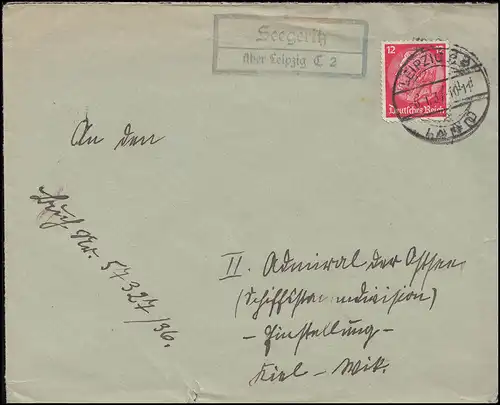 Seegeritz
über Leipzig C 2
12 12
Deutsches Reich
LEIPZIG C 2
An den
Buch Nr. 57327/36.
II. Admiral der Ostsee
(Schiffsstammdivision)
- Einstellung -
Kiel - Wik.